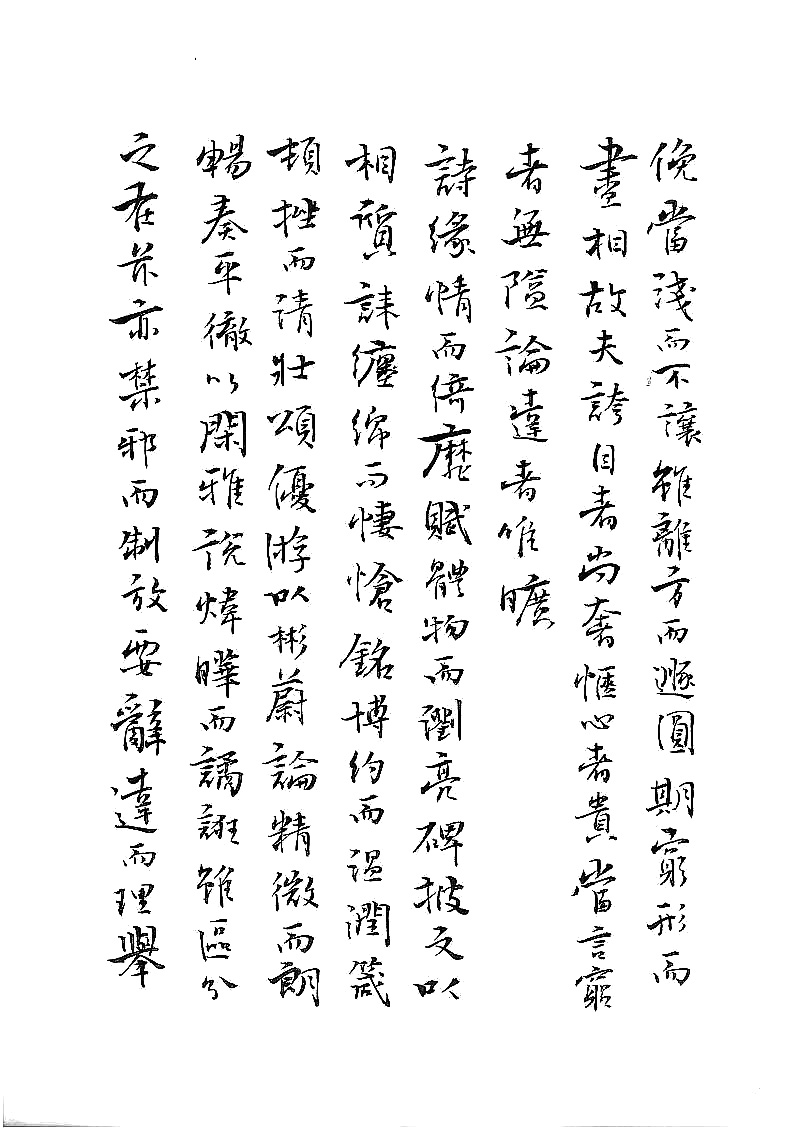 俛當淺而不讓雖離方而遯圓期窮形而
盡相故夫誇目者尚奢愜心者貴當言窮
者無隘論達者唯曠
詩緣情而綺靡賦體物而瀏亮碑披文以
相質誄纏綿而悽愴銘博約而溫潤箴
頓挫而清壯頌優游以彬蔚論精微而朗
暢奏平徹以閑雅說煒曄而譎誑雖區分
之在茲亦禁邪而制放要辭達而理舉